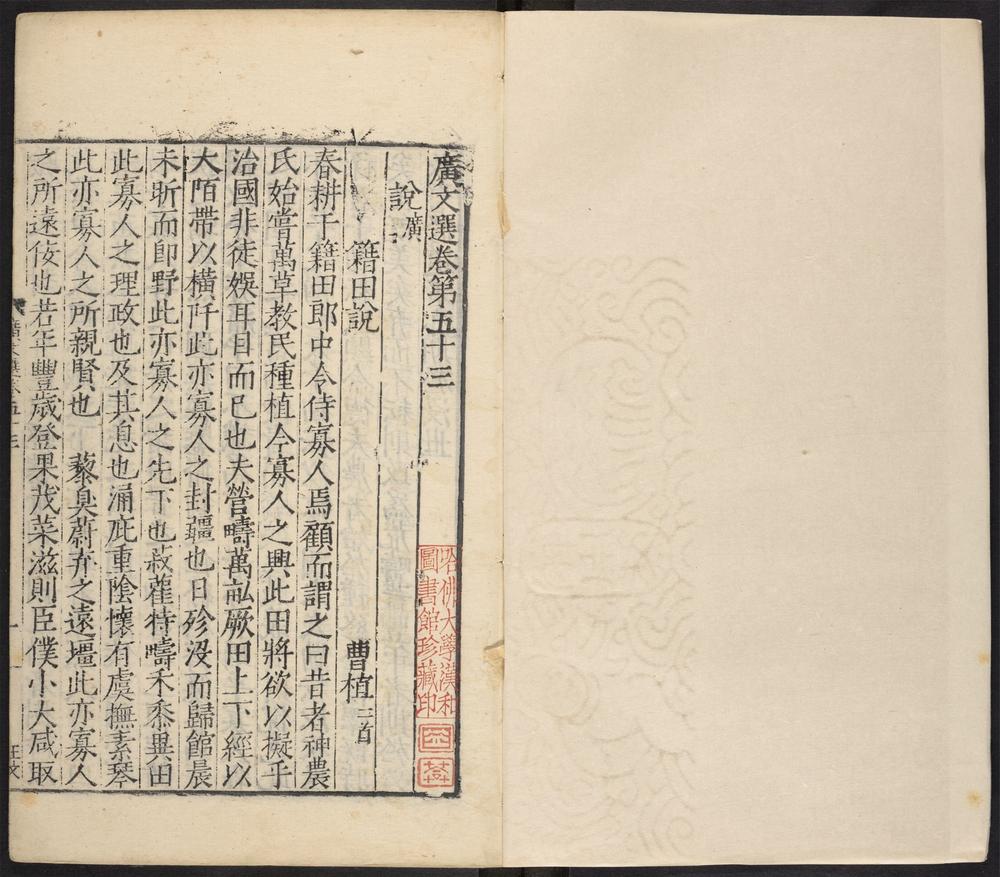 廣文選卷第五十三
說廣
籍田說 曹植二首
春耕于籍田郎中令侍寡人焉顧而謂之曰昔者神農
氏始嘗萬草教民種植今寡人之興此田將欲以擬乎
治國非徒娛耳目而已也夫營疇萬畝厥田上下經以
大陌帶以橫阡此亦寡人之封疆也日殄没而歸館晨
未昕而即野此亦寡人之先下也菽藿特疇禾黍異田
此寡人之理政也及其息也涌庇重陰懷有虞撫素琴
此亦寡人之所親賢也 藜臭蔚弃之遠壃此亦寡人
之所遠佞也若年豐歲登果茂菜滋則臣僕小大咸取
廣文選卷五十三
一
哈佛大學漢和
圖書館珍藏印